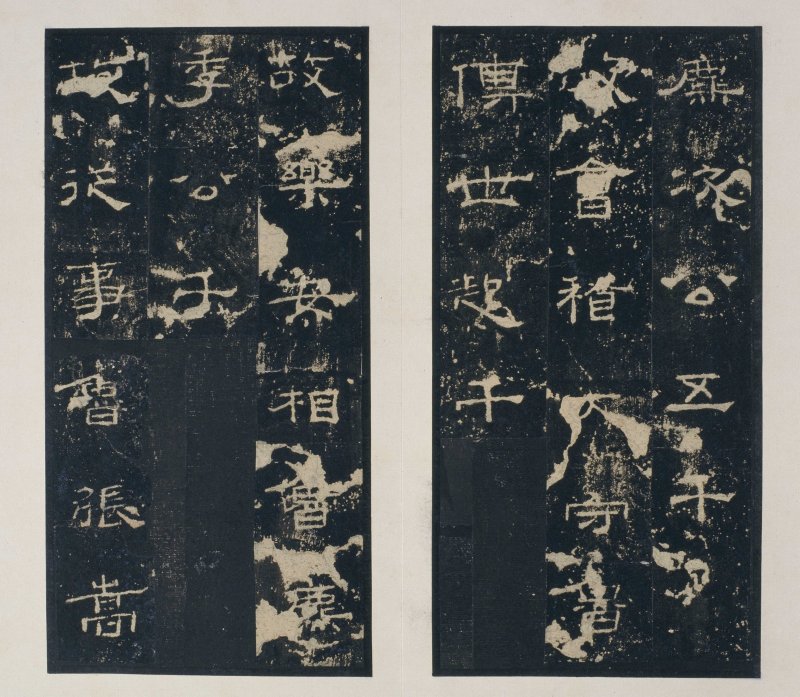 麃次公五千
故會稽大守魯
傅世起千
故樂安相魯麃
季公千
故從事魯張嵩